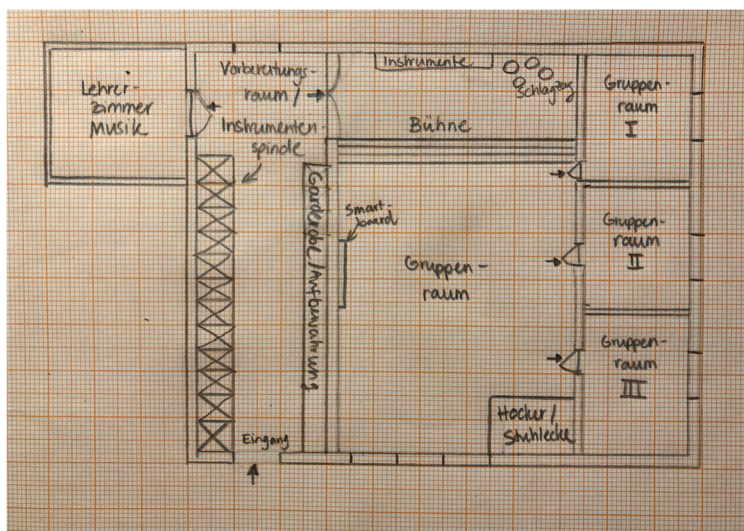 Lehrer-
zimmer
Musik
Vorbereitungs-
raum /
Instrumenten-
spinde
Instrumente
Schlagzeug
Bühne
Gruppen-
raum
I
Garderobe / Aufbewahrung
Smart-
board
Gruppen-
raum
Gruppen-
raum
II
Gruppen-
raum
III
Hocker /
Stuhlecke
Eingang